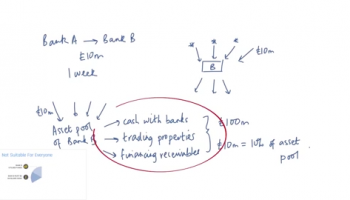 Bank A → Bank B
£10m
1 week
£10m
B
£10m
Asset pool
of Bank B
→ cash with banks
→ trading properties
→ financing receivables
£100m
£10m = 10% of asset
pool
Not Suitable For Everyone